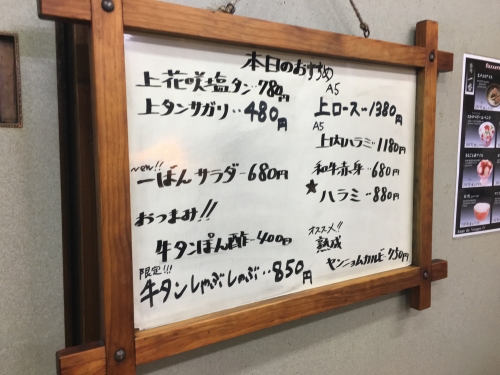 本日のおすすめ
上花咲塩タン・780円
上タンサガリ・・480円
New!!
一ぽんサラダー680円
おつまみ!!
牛タンぽん酢-400円
限定!!!
牛タンしゃぶしゃぶ・・850円
A5
上ロース-1380円
A5
上内ハラミ-1180円
和牛赤身-680円
★ハラミ-880円
オススメ!!
熟成
ヤンニョムカルビ-750円